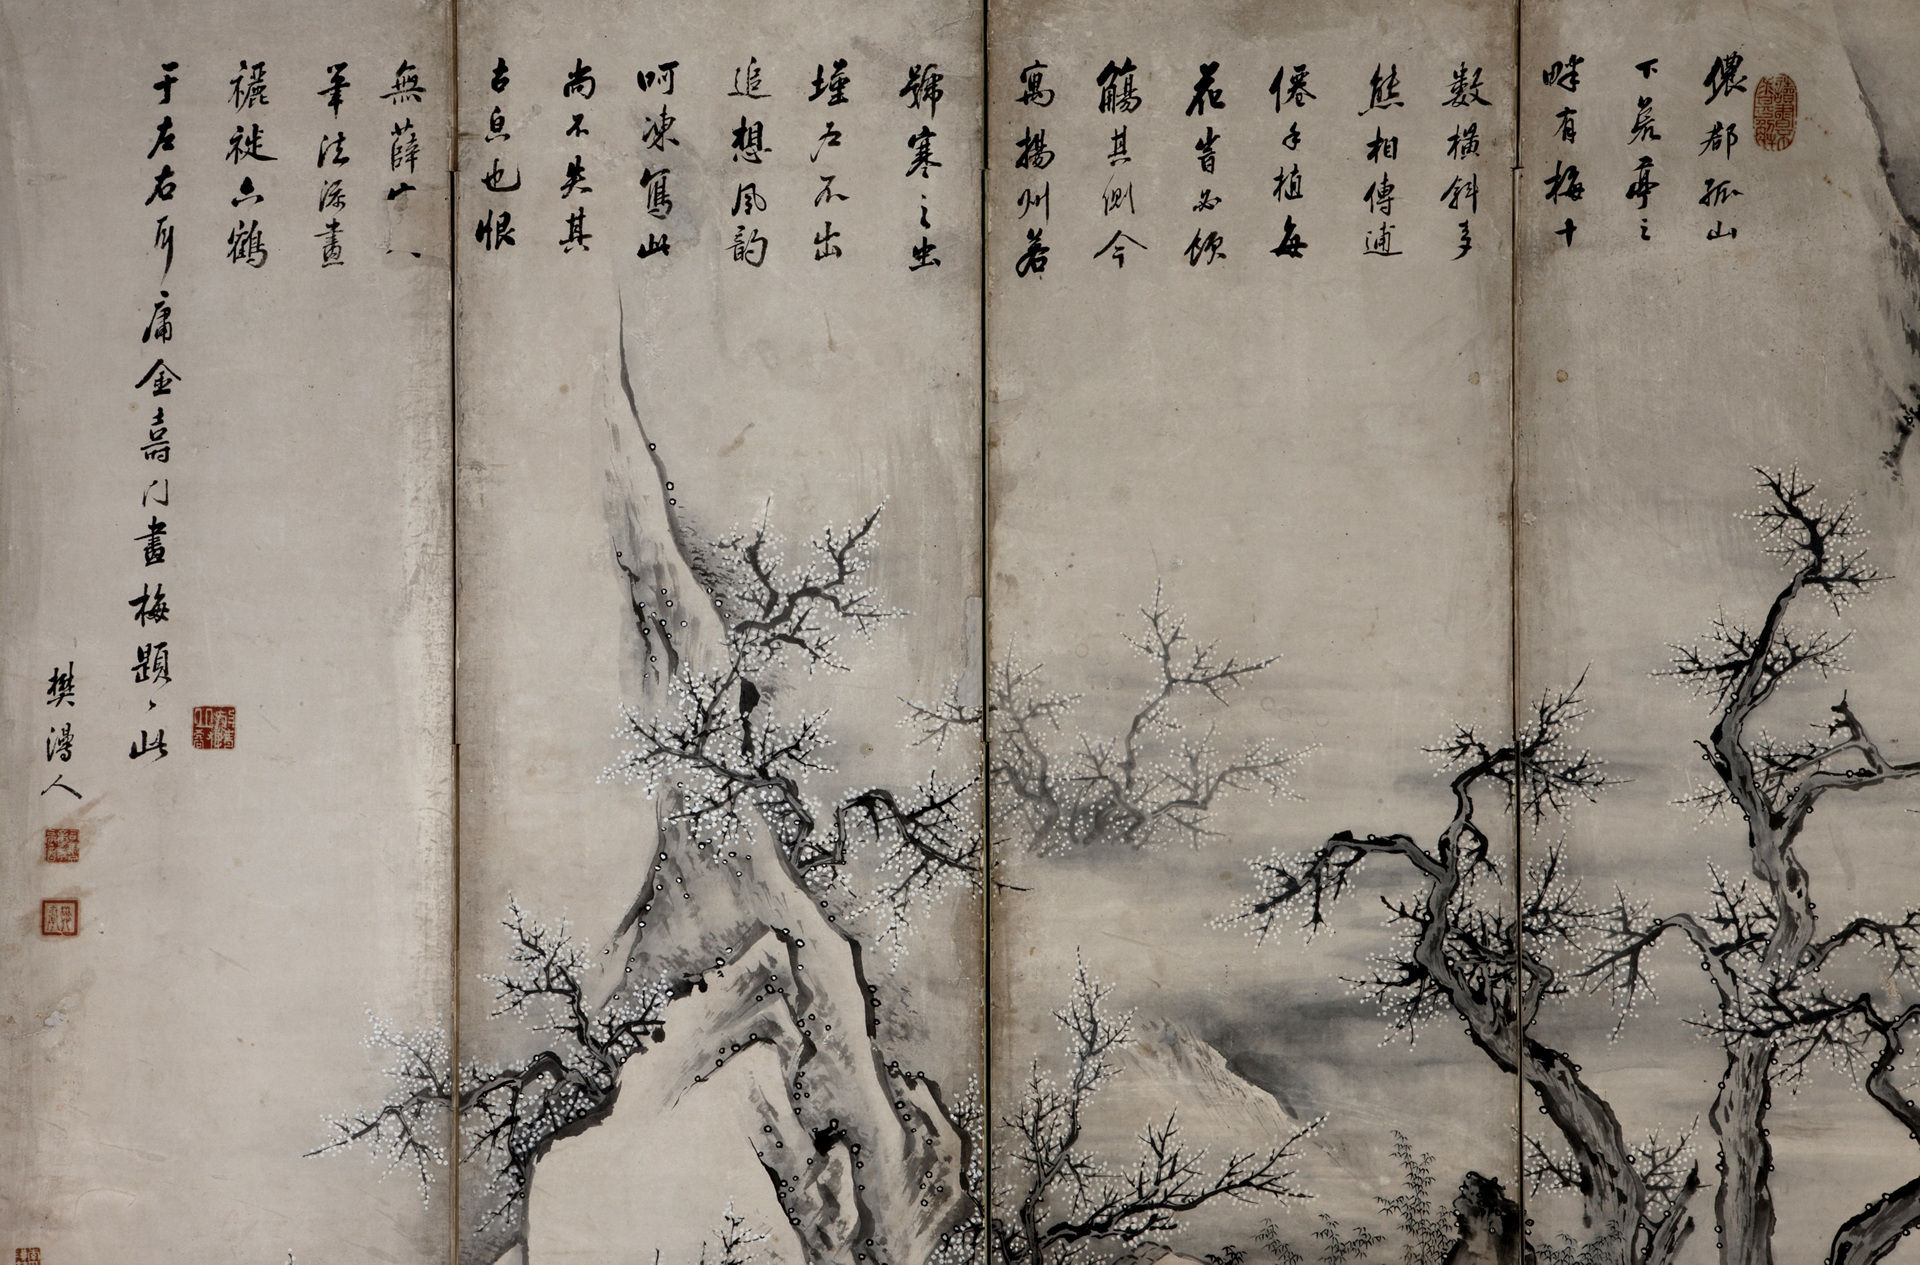 儂都孤山
下亭之
畔有梅十
數橫斜多
態相傳逋
僊手植每
花旹必傾
觴其側今
寓揚州若
號寒之虫
墐户不出
追想風韵
呵凍寫此
尚不失其
古也恨
無薛少
筆法添畫
褵褷六鶴
于左右耳 庸金壽門畫梅題〻此
樊人